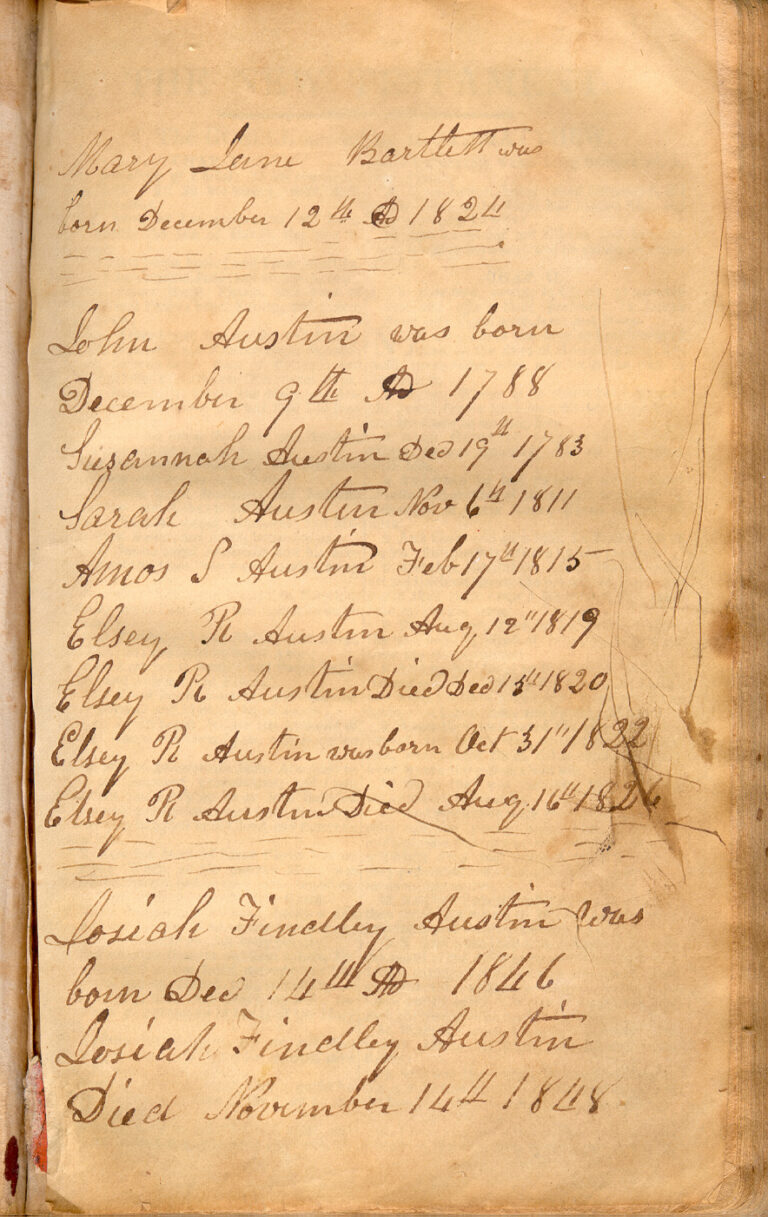 Mary Jane Bartlett was
born December 12th AD 1824
John Austin was born
December 9th AD 1788
Susannah Austin Dec 19th 1783
Sarah Austin Nov 6th 1811
Amos S Austin Feb 17th 1815
Elsey R Austin Aug 12" 1819
Elsey R Austin Died Dec 15th 1820
Elsey R Austin was born Oct 31" 1822
Elsey R Austin Died Aug 16th 1826
Josiah Findley Austin was
born Dec 14th AD 1846
Josiah Findley Austin
Died November 14th 1848